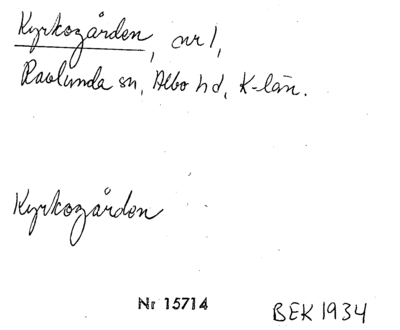 Kyrkogården, nr 1,
Ravlunda sn, Albo hd, K-län.
Kyrkogården
Nr 15714
BEK 1934